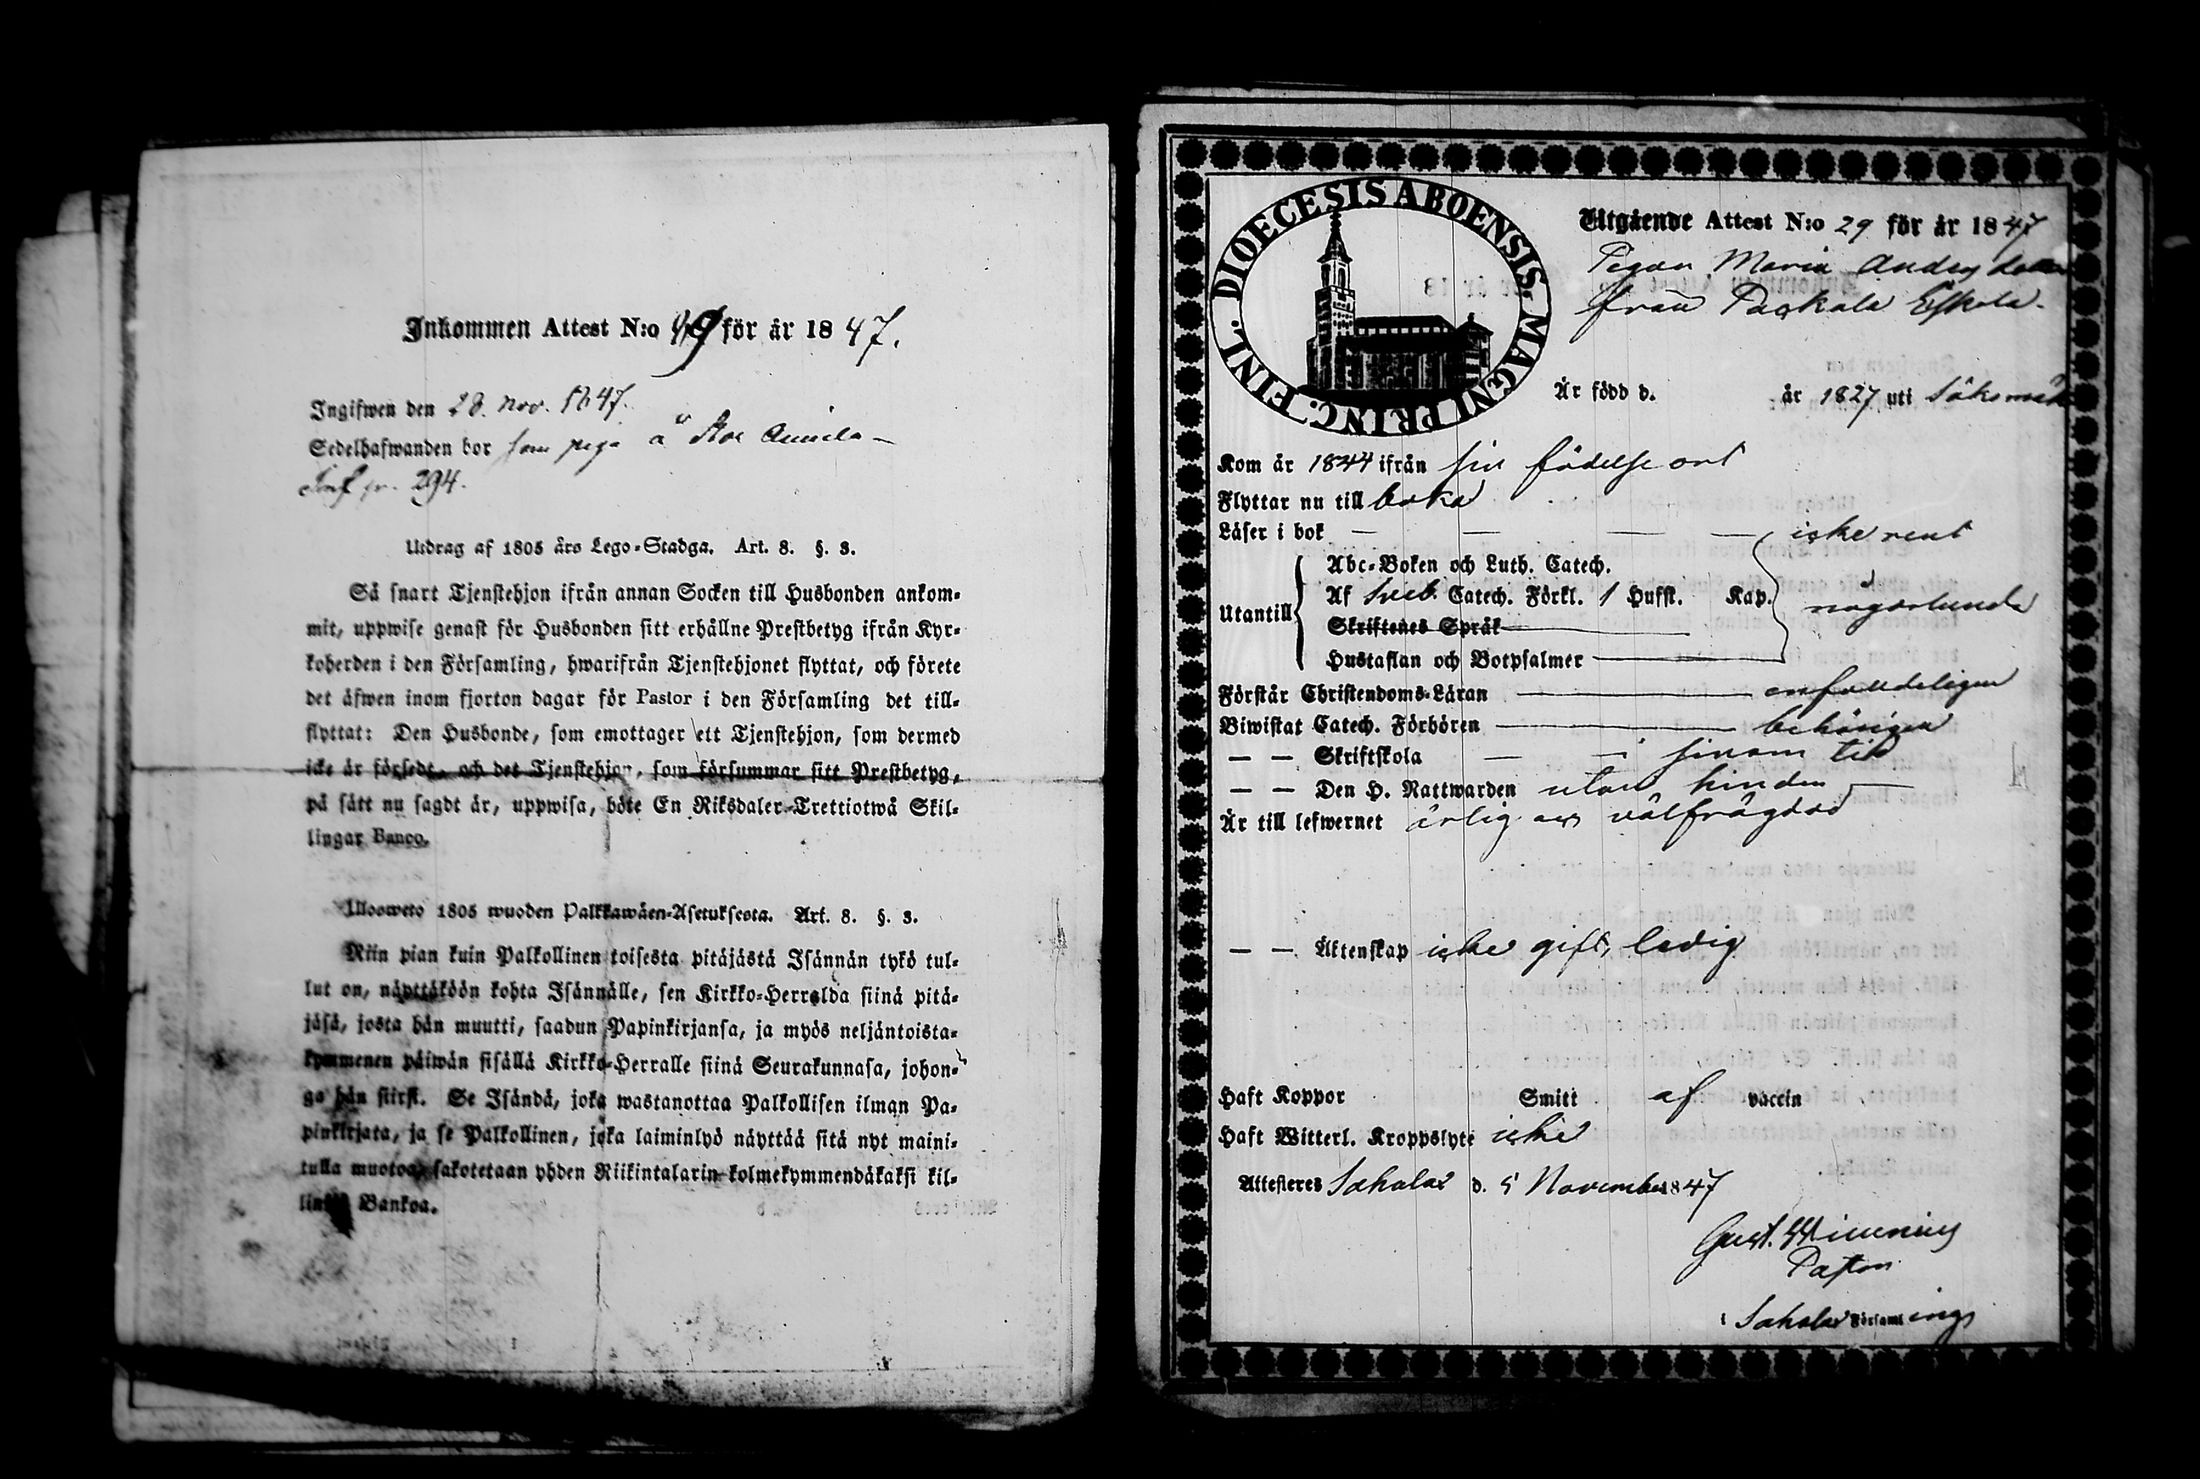 Inkommen Attest N:o 49 för år 1847.
Ingifwen den 28. nov. 1847.
Sedelhafwanden bor som piga å Stor
Inf p. 294.
Utdrag af 1805 års Lego-Stadga. Art. 8. §. 3.
Så snart Tjenstehjon ifrån annan Socken till Husbonden ankom-
mit, uppwise genast för Husbonden sitt erhållne Prestbetyg ifrån Kyr-
koherden i den Församling, hwarifrån Tjenstehjonet flyttat, och förete
det äfwen inom fjorton dagar för Pastor i den Församling det till-
flyttat: Den Husbonde, som emottager ett Tjenstehjon, som dermed
icke är försedt, och det Tjenstehjon, som försummar sitt Prestbetyg,
på sätt nu sagdt är, uppwisa, böte En Riksdaler Trettiotwå Skil-
lingar Banco.
Ulosweto 1805 wuoden Palkkawäen-Asetuksesta. Art. 8. §. 3.
Niin pian kuin Palkollinen toisesta pitäjästä Isännän tykö tul-
lut on, näyttäköön kohta Isännälle, sen Kirkko-Herralda siinä pitä-
jäsä, josta hän muutti, saadun Papinkirjansa, ja myös neljäntoista-
kymmenen päiwän sisällä Kirkko-Herralle siinä Seurakunnasa, johon-
ga hän siirst. Se Isändä, joka wastanottaa Palkollisen ilman Pa-
pinkirjata, ja se Palkollinen, joka laiminlyö näyttää sitä nyt maini-
tulla muotoa, sakotetaan yhden Riikintalarin kolmekymmendäkaksi kil-
lingi Bankoa.
DIOECESIS ABOENSIS. MAGNI PRINC. FINL.
Utgående Attest N:o 29 för år 1847
Pigan Maria Andersdotter
från Paskala Eskola.
Är född d. år 1827 uti Säksmäki
Kom år 1844 ifrån sin födelse ort
Flyttar nu till
Läser i bok — — — — icke rent
Utantill
Abc-Boken och Luth. Catech.
Af Sveb. Catech. Förkl. 1 Hufst. Kap. någorlunda
Skriftenes Språk
Hustaflan och Botpsalmer
Förstår Christendoms-Läran — enfaldeligen
Biwistat Catech. Förhören — behörigen
— — Skriftskola — i sinom tid
— — Den H. Nattwarden utan hinder —
Är till lefwernet ärlig och välfrägdad
— — Äktenskap icke gift, ledig
Haft Koppor Smitt af vaccin
Haft Witterl. Kroppslyte icke
Attesteres Sahalax d. 5 November 1847
Gust.
Pastor
i Sahalax Församlings